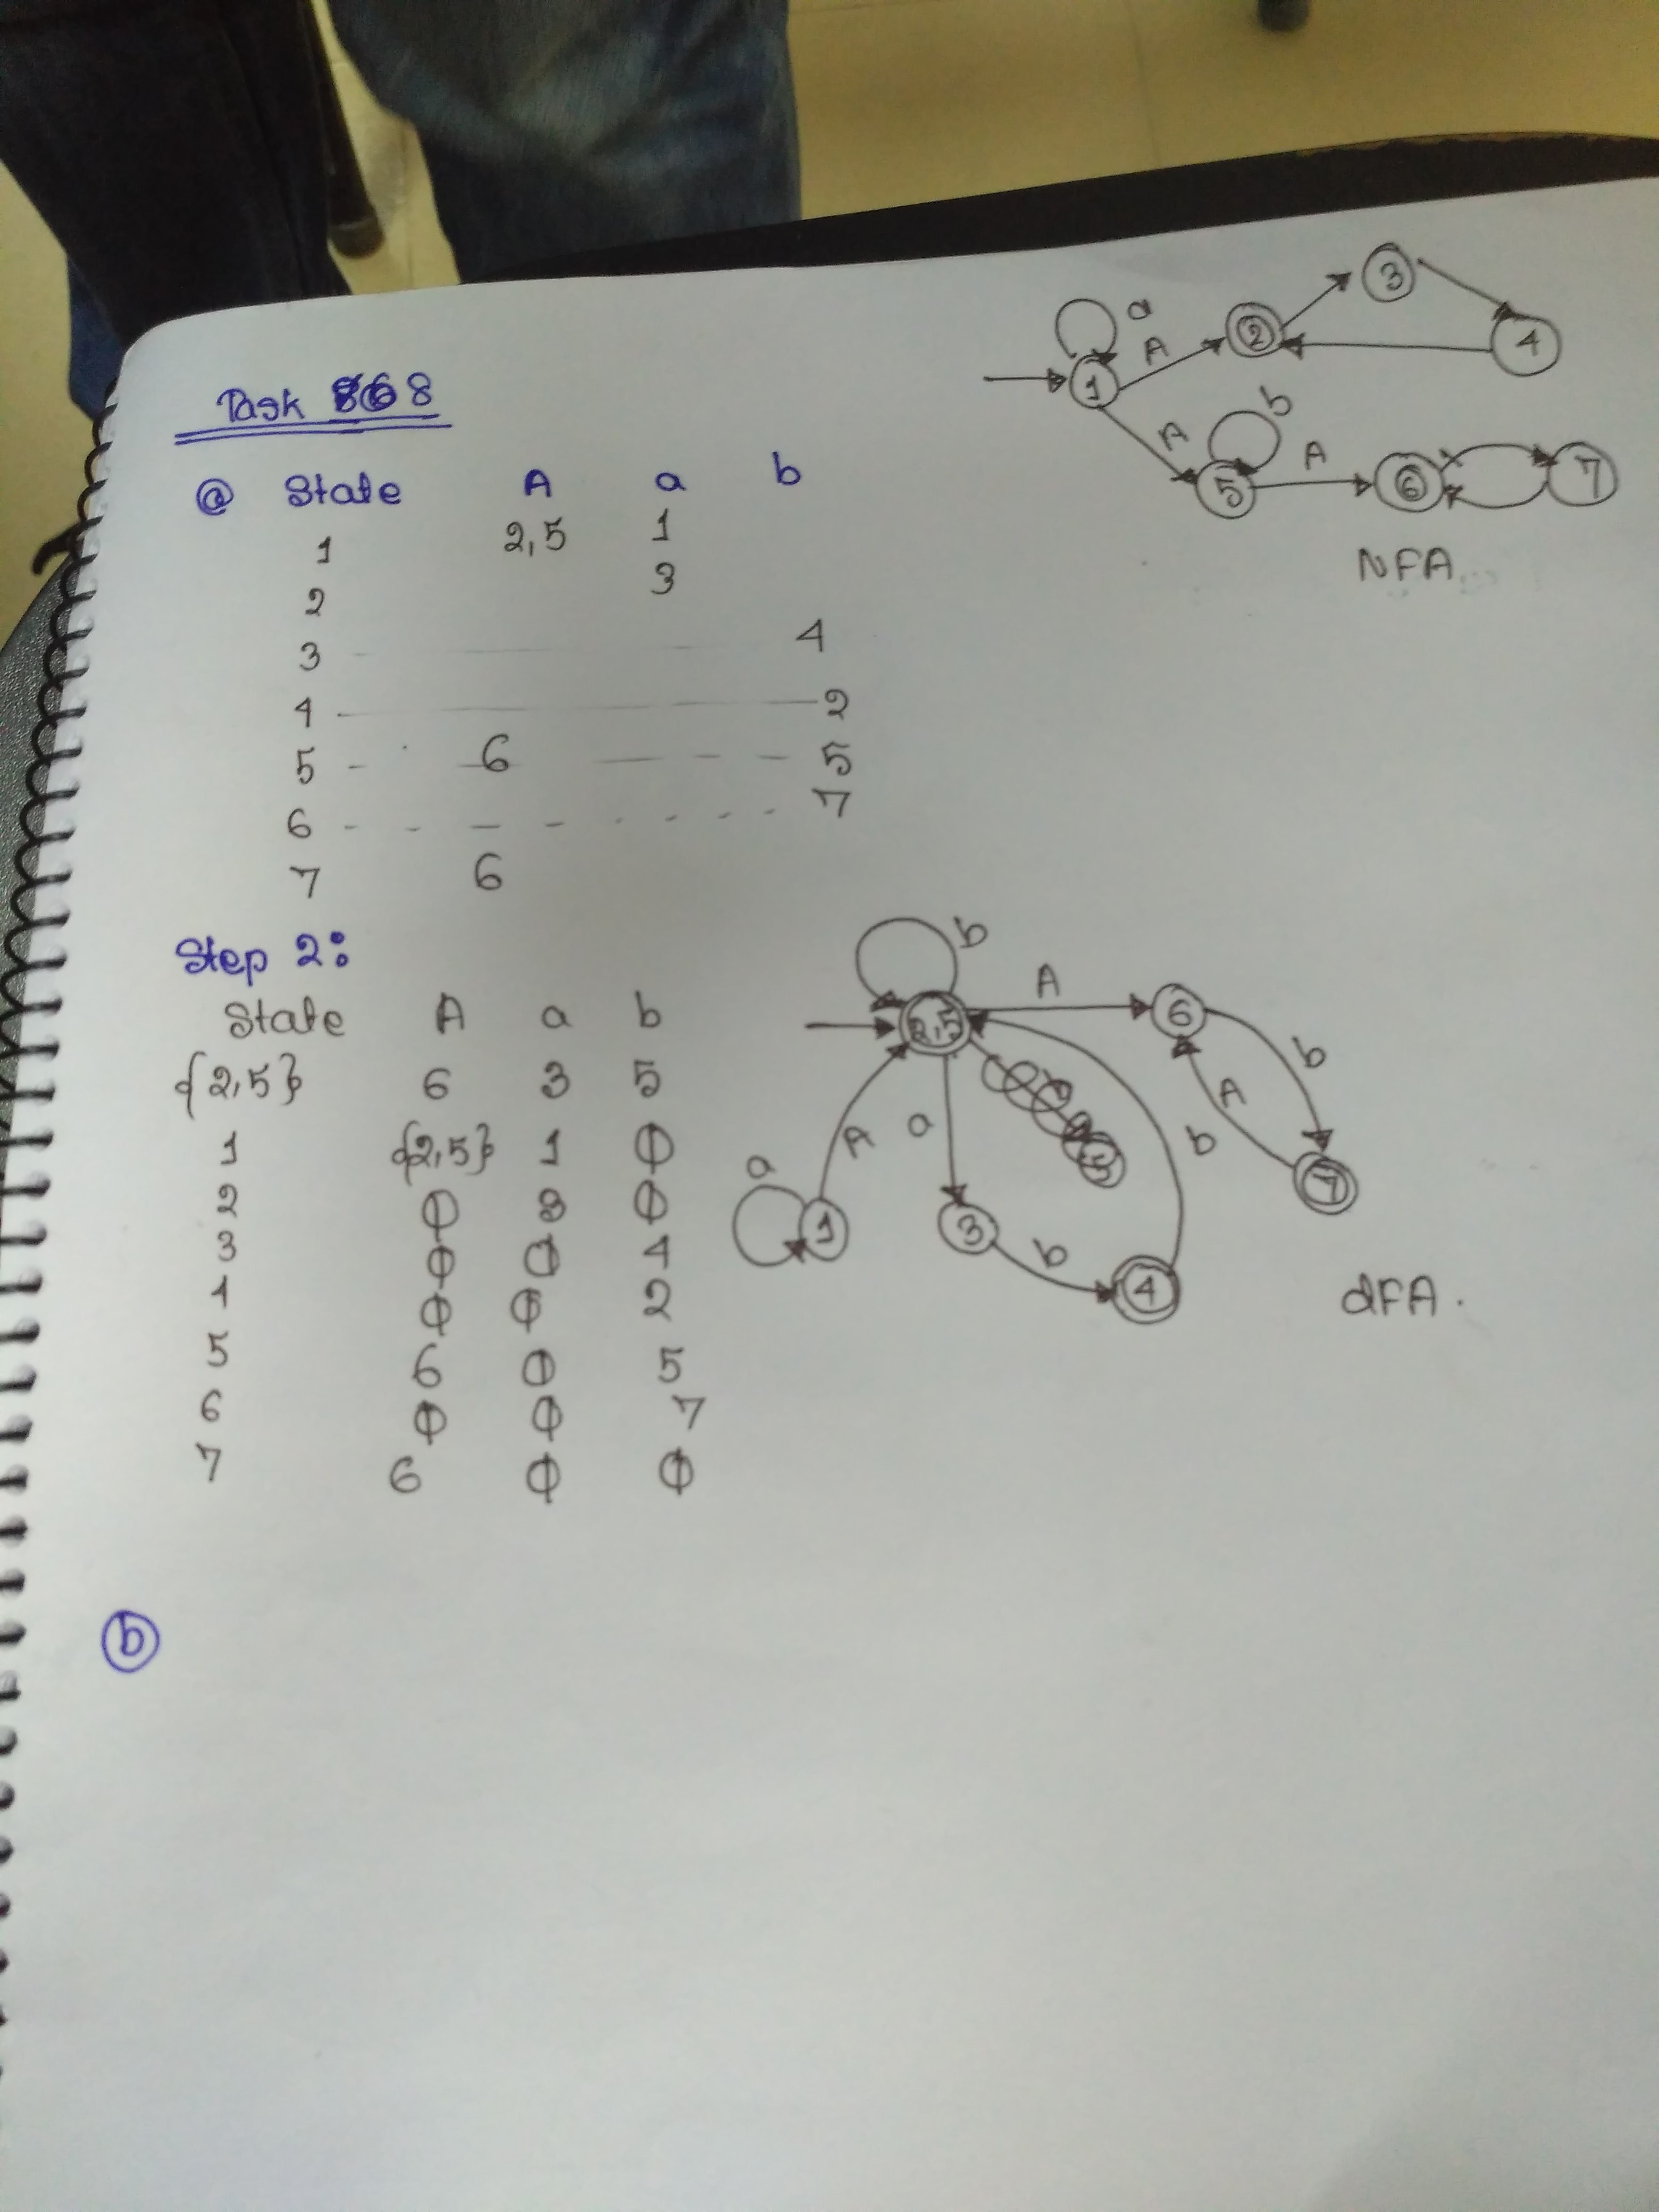 Task 8
a State A a b
1 2,5 1
2 3
3 4
4 2
5 6 5
6 7
7 6
a
A
A
b
A
1
2
3
4
5
6
7
NFA
Step 2:
State A a b
{2,5} 6 3 5
1 {2,5} 1 Φ
2 Φ 3 Φ
3 Φ Φ 4
4 Φ Φ 2
5 6 Φ 5
6 Φ Φ 7
7 6 Φ Φ
b
A
2,5
6
b
A
A
a
b
a
1
3
b
4
7
dFA.
b